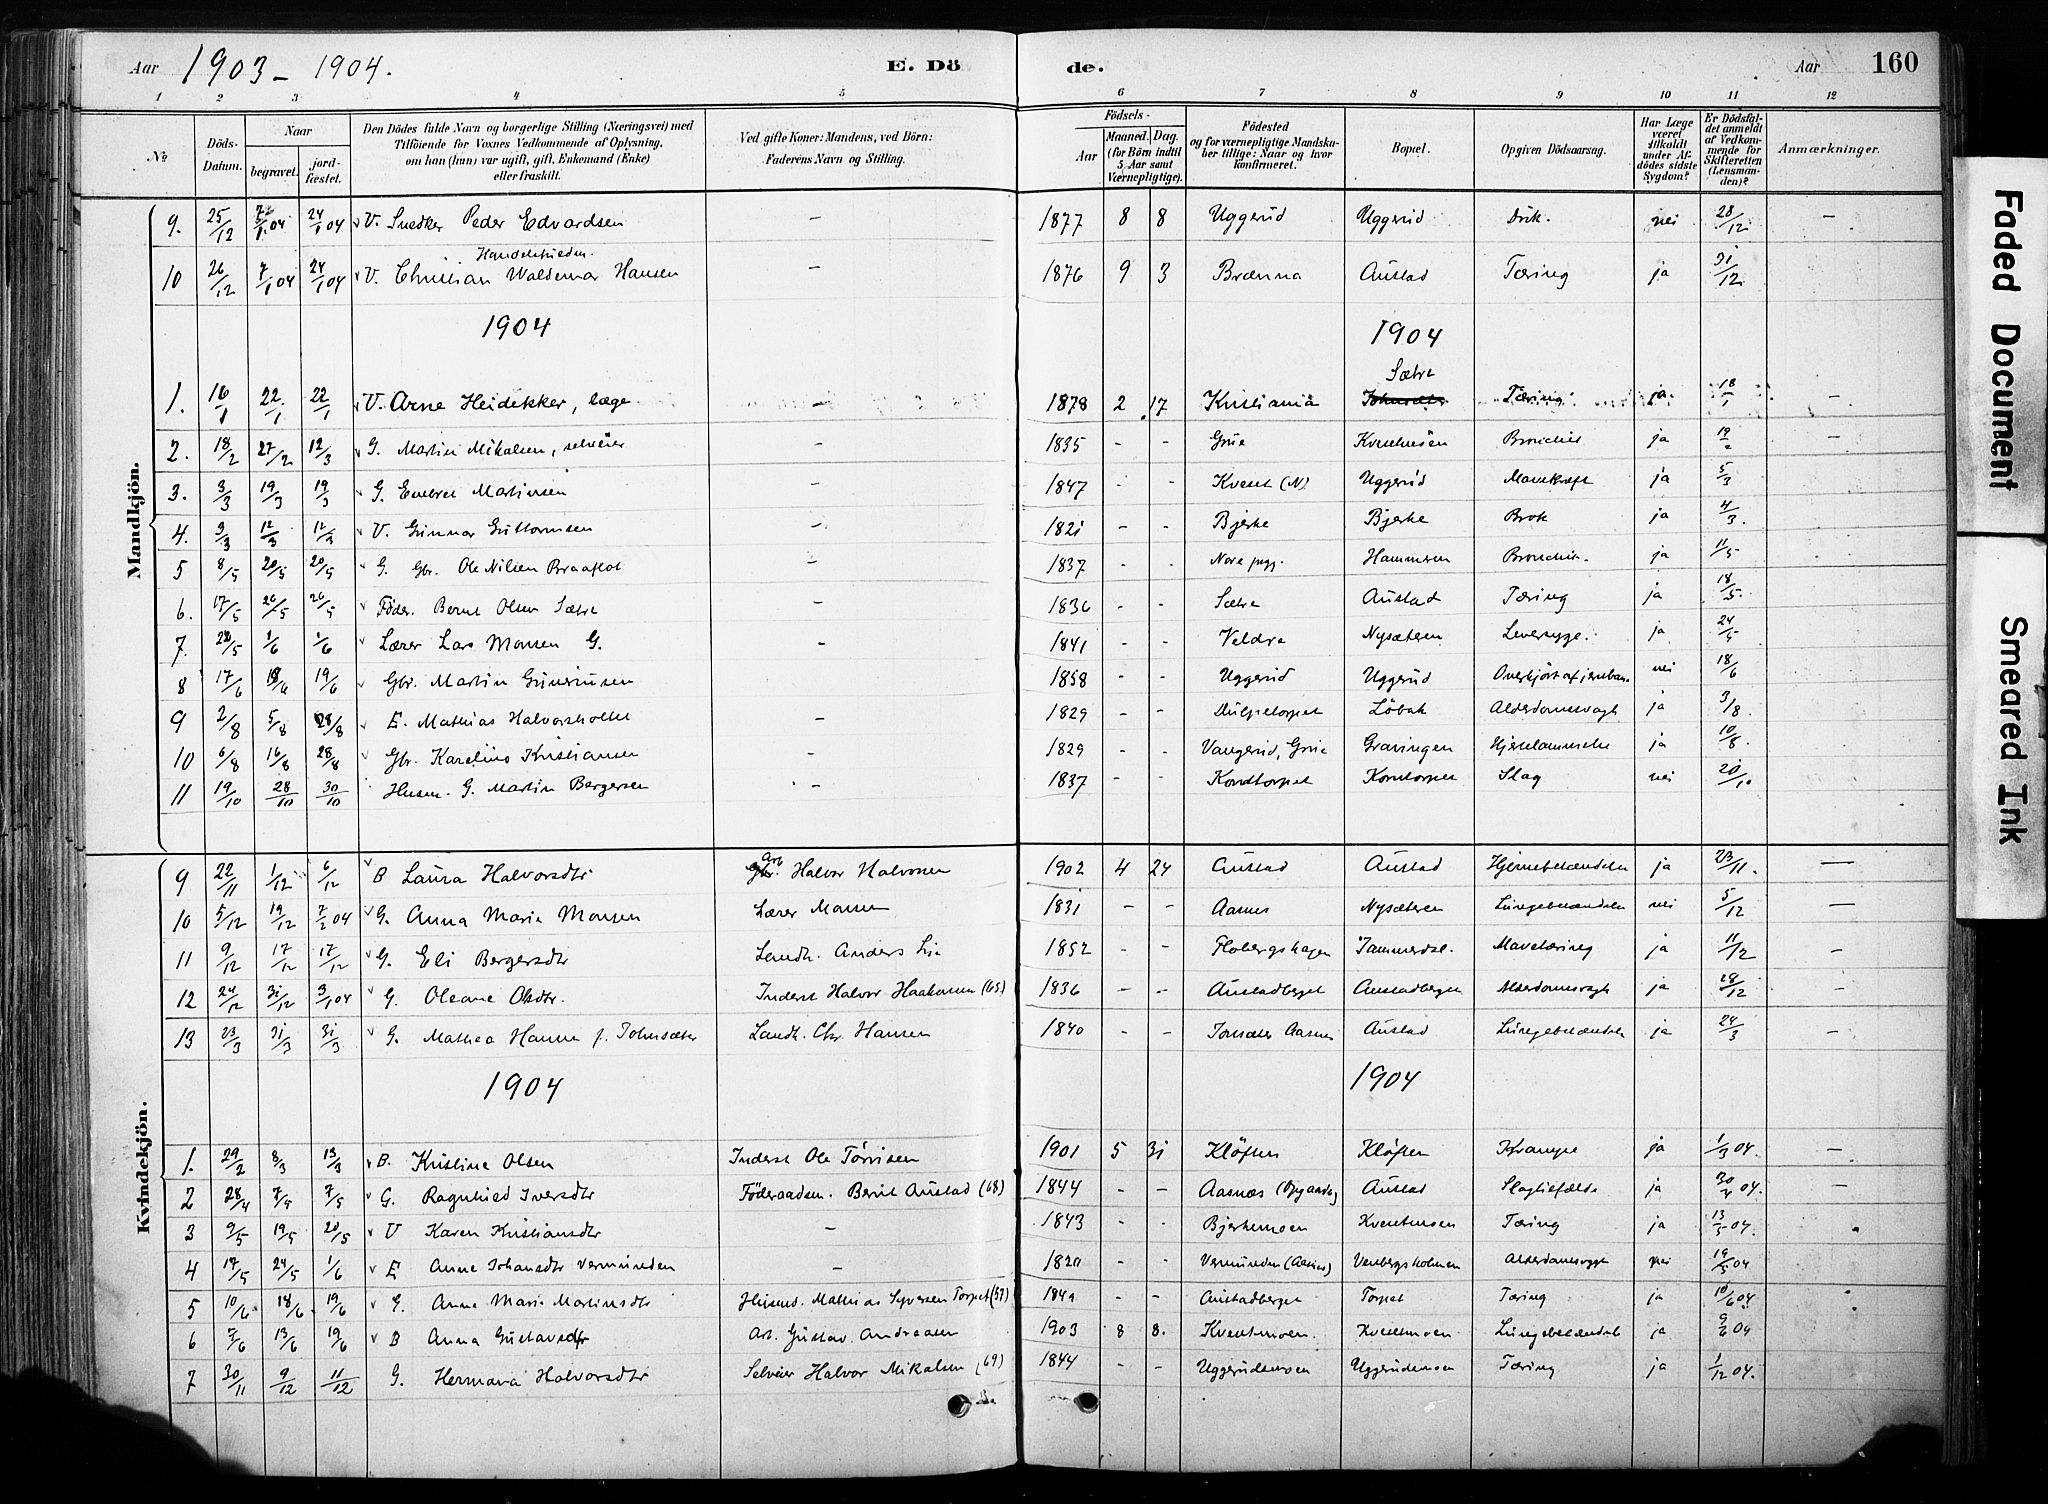 Aar 1903 - 1904. E. Dö de. Aar 160
1 2 3 4 5 6 7 8 9 10 11 12
No Döds-Datum. Naar begravet. jord-fæstet. Den Dödes fulde Navn og borgerlige Stilling (Næringsvei) med Tilföiende for Voxnes Vedkommende af Oplysning, om han (hun) var ugift, gift, Enkemand (Enke) eller fraskilt. Ved gifte Koner: Mandens, ved Börn: Faderens Navn og Stilling. Födsels- Aar Maaned. Dag. (for Börn indtil 5 Aar samt Værnepligtige). Födested og for værnepligtige Mandskaber tillige: Naar og hvor konfirmeret. Bopæl. Opgiven Dödsaarsag. Har Læge været tilkaldt under Afdödes sidste Sygdom? Er Dödsfaldet anmeldt af Vedkommende for Skifteretten (Lensmanden)? Anmærkninger.
Mandkjön.
9. 25/12 04 24/1 04 V. Snedker Peder Edvardsen — 1877 8 8 Uggerud Uggerud Druk. nei 28/12 —
Handelsbetien.
10 26/12 7/1 04 24/1 04 V. Christian Waldemar Hansen — 1876 9 3 Brænna Austad Tæring ja 31/12
1904 1904
Sætre
1. 16/1 22/1 22/1 V. Arne Heidekker, læge — 1878 2 17 Kristiania Tæring ja 18/1 —
2. 18/2 27/2 12/3 G. Martin Mikalsen, selveier — 1835 - - Grue Kventmoen Bronchit ja 19/2 —
3. 3/3 19/3 19/3 G. Embret Martinsen — 1847 - - Kveset (N) Uggerud Mavekræft ja 5/3
4. 3/3 12/3 12/3 V. Gunnar Guttormsen — 1821 - - Bjerke Bjerke Brok ja 4/3.
5 8/5 20/5 20/5 G. Gbr. Ole Nilsen Braaflot — 1837 - - Nore pgj. Hammeren Bronchit. ja 11/5
6. 17/5 26/5 26/5 Föder. Bernt Olsen Sætre — 1836 - - Sætre Austad Tæring ja 18/5.
7. 22/5 1/6 1/6 Lærer Lars Monsen G. — 1841 - - Veldre Nysæteren Leversyge. ja 24/5
8 17/6 18/6 19/6 Gbr. Martin Guneriusen 1858 - - Uggerud Uggerud Overkjört af jernban. nei 18/6
9 2/8 5/8 28/8 E. Mathias Halvorsholtet — 1829 - - Dulpetorpet Löbak Alderdomssvagh ja 3/8.
10 6/8 16/8 28/8 Gbr. Karelius Kristiansen — 1829 - - Vangerud, Grue Gravingen Hjertelammelse ja 10/8.
11 19/10 28/10 30/10 Husm. G. Martin Bergersen — 1837 - - Korntorpet Korntorpet Slag nei 20/10
Kvindekjön.
9 22/11 1/12 6/12 B Laura Halvorsdtr Arb Halvor Halvorsen 1902 4 24 Austad Austad Hjernebetændelse ja 23/11. —
10 5/12 19/12 7/2 04 G. Anna Maria Monsen Lærer Monsen 1831 - - Aasnes Nysæteren Lungebetændelse nei 5/12 —
11 9/12 17/12 17/12 G. Eli Bergersdtr Landh. Anders Lie 1852 - - Flobergshagen Tammerdal. Mavetæring ja 11/12 —
12 24/12 31/12 3/1 04 G. Oleane Olsdtr. Inderst Halvor Haakonsen (65) 1836 - - Austadberget Austadberget Alderdomssvagh ja 28/12 —
13 23/3 31/3 31/3 G. Mathea Hansen f. Johnsæter Landh. Chr. Hansen 1840 - - Jonsæter Aasnes Austad Lungebetændelse ja 24/3 —
1904 1904
1. 29/2 8/3 13/3 B. Kristine Olsen Inderst Ole Törrisen 1901 5 31 Klöften Klöften Krampe ja 1/3 04. —
2 28/4 7/5 7/5 G. Ragnhild Iversdtr Föderaadsm. Bernt Austad (68) 1844 - - Aasnæs Austad Slagtilfælde ja 30/4 04. —
3 9/5 19/5 20/5 U Karen Kristiansdtr — 1843 - - Bjerkemoen Kventmoen Tæring ja 13/5 04.
4 17/5 24/5 1/6 E Anne Johansdtr Vermunden — 1820 - - Vermunden (Aasnes) Venbergsholmen Alderdomssvagh nei 19/5 04
5 10/6 18/6 19/6 G. Anna Maria Martinsdtr Husmd. Mathias Syversen Torpet (37) 184 - - Austadberget Torpet Tæring ja 10/6 04.
6 5/6 13/6 19/6 B Anna Gustavsdtr Arb. Gustav Andreasen 1903 8 8. Kventmoen. Kventmoen Lungebetændelse ja 9/6 04
7 30/11 9/12 11/12 G. Hermana Halvorsdtr Selveier Halvor Mikalsen (69) 1844 - - Uggerudsmoen Uggerudsmoen Tæring ja 1/12 04.
Faded Document
Smeared Ink